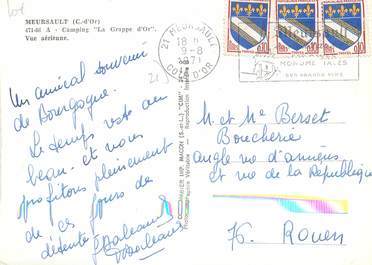 MEURSAULT (C.-d'Or)
471-66 A - Camping "La Grappe d'Or".
Vue aérienne.
21 MEURSAULT
18 H
9-8
1971
COTE D'OR
Meursault
MONUMENTALES
SES GRANDS VINS
0,10
0,10
0,10
Un amical souvenir
de Bourgogne.
Le temps reste au
beau - et nous
profitons pleinement
de ces jours de
détente
IMP. MACON (S.-et-L.) "CIM"
Reproduction
M. et Me Berset
Boucherie
angle rue d'amiens
et rue de la République
76. Rouen